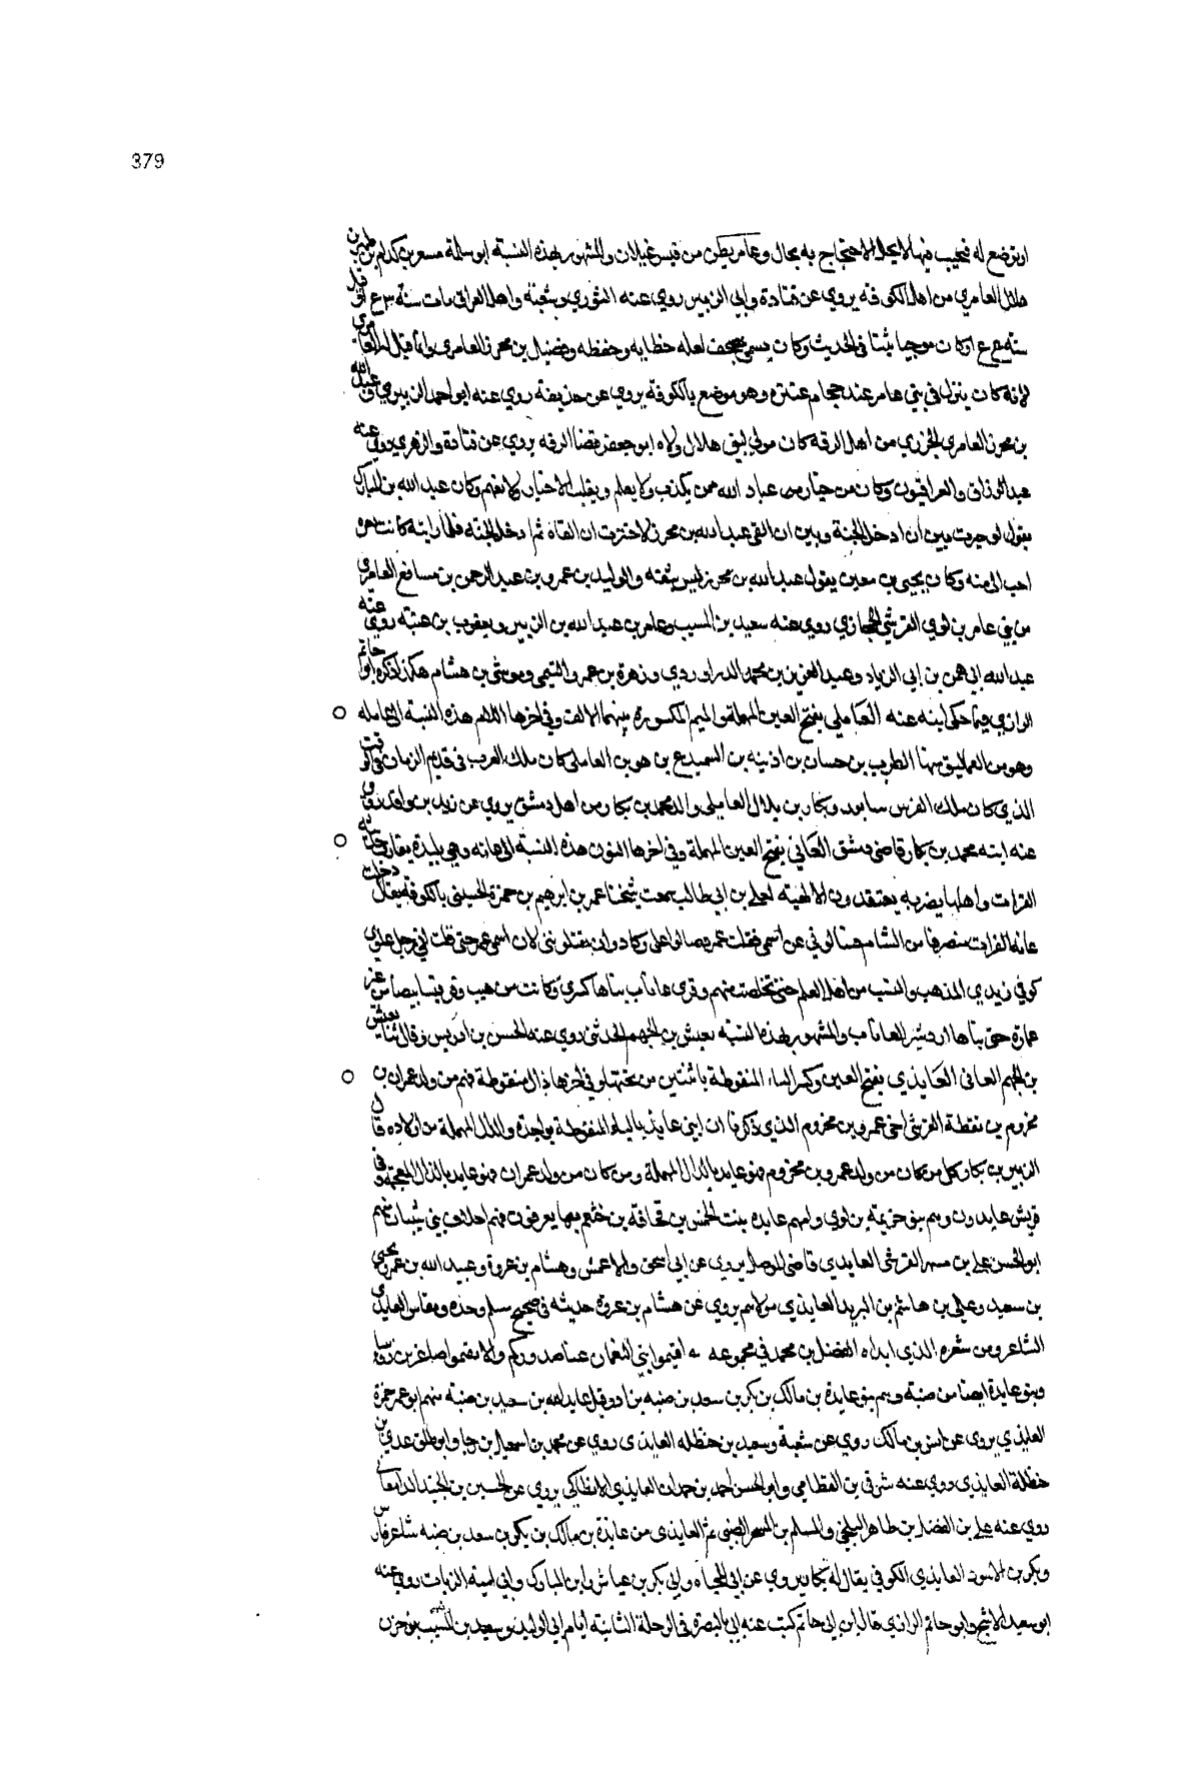 379
او توضع له فيجيب فيها لا يحل الاحتجاج به بحال وعامر بطن من قيس غيلان والمشهور بهذه النسبة ابو سلمة مسعر بن كدام بن ظهير بن
هلال العامري من اهل الكوفة يروي عن قتادة وابي الزبير روي عنه الثوري وشعبة واهل العراق مات سنة
سنة وكان مرجيا ثبتا في الحديث وكان يسمى المصحف لقلة خطايه وحفظه وفضيل بن العامري وانما قيل له العامري
لانه كان ينزل في بني عامر عند حمام عنترة وهو موضع بالكوفة يروي عن حذيفة روي عنه ابو احمد الزبيري وعبد الله
بن محرز العامري الجزري من اهل الرقة كان مولي لبني هلال ولاه ابو جعفر قضا الرقة يروي عن قتادة والزهري روي عنه
عبد الرزاق والعراقيون وكان من خيار عباد الله ممن يكذب ولا يعلم ويقلب الاخبار ولا يفهم وكان عبد الله بن المبارك
يقول لو خيرت بين ان ادخل الجنة وبين ان القي عبد الله بن محرز لاخترت ان القاه ثم ادخل الجنة فلما رايته كانت بعرة
احب الي منه وكان يحيي بن معين يقول عبد الله بن محرز ليس بثقة والوليد بن عمرو بن عبد الرحمن بن مسافع العامري
من بني عامر بن لوي القرشي الحجازي روي عنه سعيد بن المسيب وعامر بن عبد الله بن الزبير ويعقوب بن عتبة روي عنه
عبد الله بن ابي الزناد وعبد العزيز بن محمد الدراوردي وزهرة بن عمرو التيمي وموسى بن هشام هكذا ذكره ابو حاتم
الرازي فيما حكي ابنه عنه العاملي بفتح العين المهملة والميم المكسورة بينهما الالف وفي اخرها اللام هذه النسبة الى عاملة
وهو من العماليق منها الظرب بن حسان بن اذينة بن السميدع بن هوبر العاملي كان ملك العرب في قديم الزمان في الوقت
الذي كان ملك الفرس سابور وبكار بن بلال العاملي والد محمد بن بكار من اهل دمشق يروي عن زيد بن واقد روي
عنه ابنه محمد بن بكار قاضي دمشق العاني بفتح العين المهملة وفي اخرها النون هذه النسبة الى عانه وهي بليدة يقارب
الفرات واهلها نصرية يعتقدون الالهية لعلي بن ابي طالب سمعت شيخنا عمر بن ابرهيم بن حمزة الحسيني بالكوفة يقال دخلت
عانه الفرات منصرفا من الشام فسالوني عن اسمي فقلت عمر فصالوا علي وكادوا ان يقتلوني لان اسمي عمر حتى قلت اني رجل علوي
كوفي زيدي المذهب والنسب من اهل العلم حتى تخلصت منهم وقرى عانات بناها كسرى وكانت من هيت وقرقيسيا
عمارة حتى بناها اردشير العانات والمشهور بهذه النسبة يعيش بن الجهم الحدثي روي عنه الحسن بن ادريس وقال ثنا يعيش
بن الجهم العاني العَايذي بفتح العين وكسر الياء المنقوطة باثنتين من تحتها وفي اخرها ذال منقوطة فهم من ولد عمران بن
مخزوم بن يقظة القرشي اخي عمرو بن مخزوم الذي ذكرنا ان ابني عابد بالباء المنقوطة بواحدة والدال المهملة من اولاده قال
الزبير بن بكار وكل من كان من ولد عمرو بن مخزوم فهو عابد بالدال المهملة ومن كان من ولد عمران فهو عايذ بالذال المعجمة وفي
قريش عايذون وهم بنو خزيمة بن لوي وامهم عايذة بنت الخمس بن قحافة بن خثعم بها يعرفون فهم احلاف بني شيبان منهم
ابو الحسن علي بن مسهر القرشي العايذي قاضي الموصل يروي عن ابي اسحق والاعمش وهشام بن عروة وعبيد الله بن عمر ويحيي
بن سعيد وعلي بن هاشم بن البريد العايذي مولاهم يروي عن هشام بن عروة حديثه في صحيح مسلم وحده ومقاس العايذي
الشاعر ومن شعره الذي المفضل بن محمد في مجموعه اقيموا بني النعمان عنا صدوركم والا تقيموا صاغرين
وبنو عايذة ايضا من ضبة وهم بنو عايذة بن مالك بن بكر بن سعد بن ضبه بن اد وقيل عايذ الله بن سعيد بن ضبة منهم ابو عمر حمزة
العايذي يروي عن انس بن مالك روي عن شعبة وسعيد بن حنظلة العايذي روي عن محمد بن اسمعيل بن رجا وابو طلق عدي بن
حنظلة العايذي روي عنه شرقي بن القطامي وابو الحسن احمد بن حمدان العايذي الانطاكي يروي عن الحسين بن الجنيد الدامغاني
روي عنه علي بن الفضل بن طاهر البلخي والمسلم بن السعر الضبي ثم العايذي من عايذة بن مالك بن بكر بن سعد بن ضبه شاعر فارس
وبكر بن الاسود العايذي الكوفي يقال له بكار يروي عن ابي المحياة وابي بكر بن عياش وابن المبارك وابي امية الزيات روي عنه
ابو سعيد الاشج وابو حاتم الرازي قال ابن ابي حاتم كتب عنه ابي بالبصرة في الرحلة الثانية ايام ابي الوليد وسعيد بن المسيب بن حزن